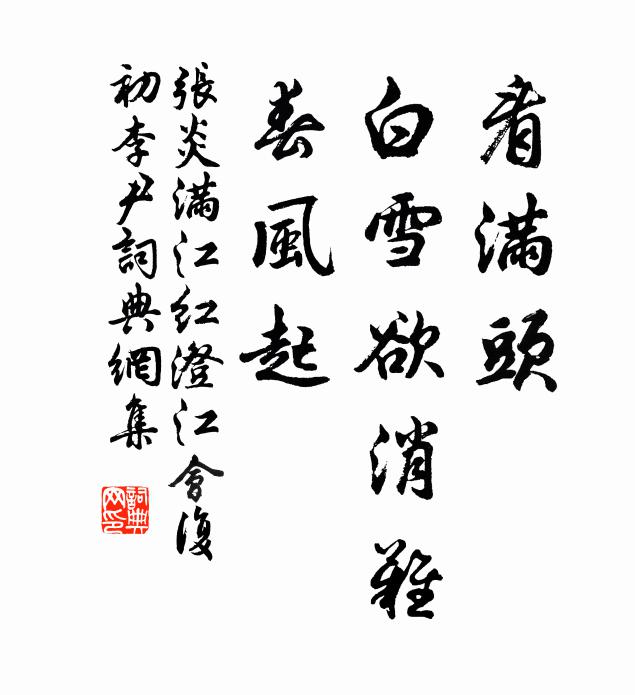 看滿頭
白雪欲消難
春風起
張炎滿江紅澄江會復
初李尹詞典網集
詞典
网印